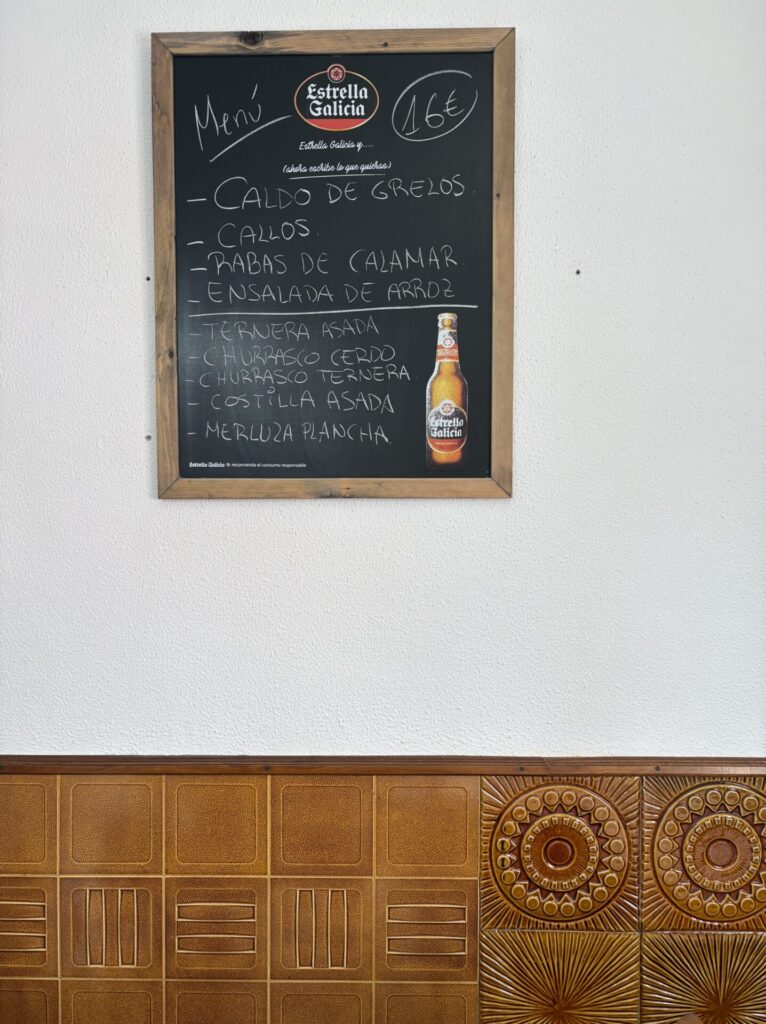 Menú
Estrella
Galicia
16€
Estrella Galicia y....
(ahora escribe lo que quieras)
- CALDO DE GRELOS.
- CALLOS.
- RABAS DE CALAMAR
- ENSALADA DE ARROZ
- TERNERA ASADA
- CHURRASCO CERDO
- CHURRASCO TERNERA
- COSTILLA ASADA
- MERLUZA PLANCHA
Estrella
Galicia
Estrella Galicia recomienda el consumo responsable